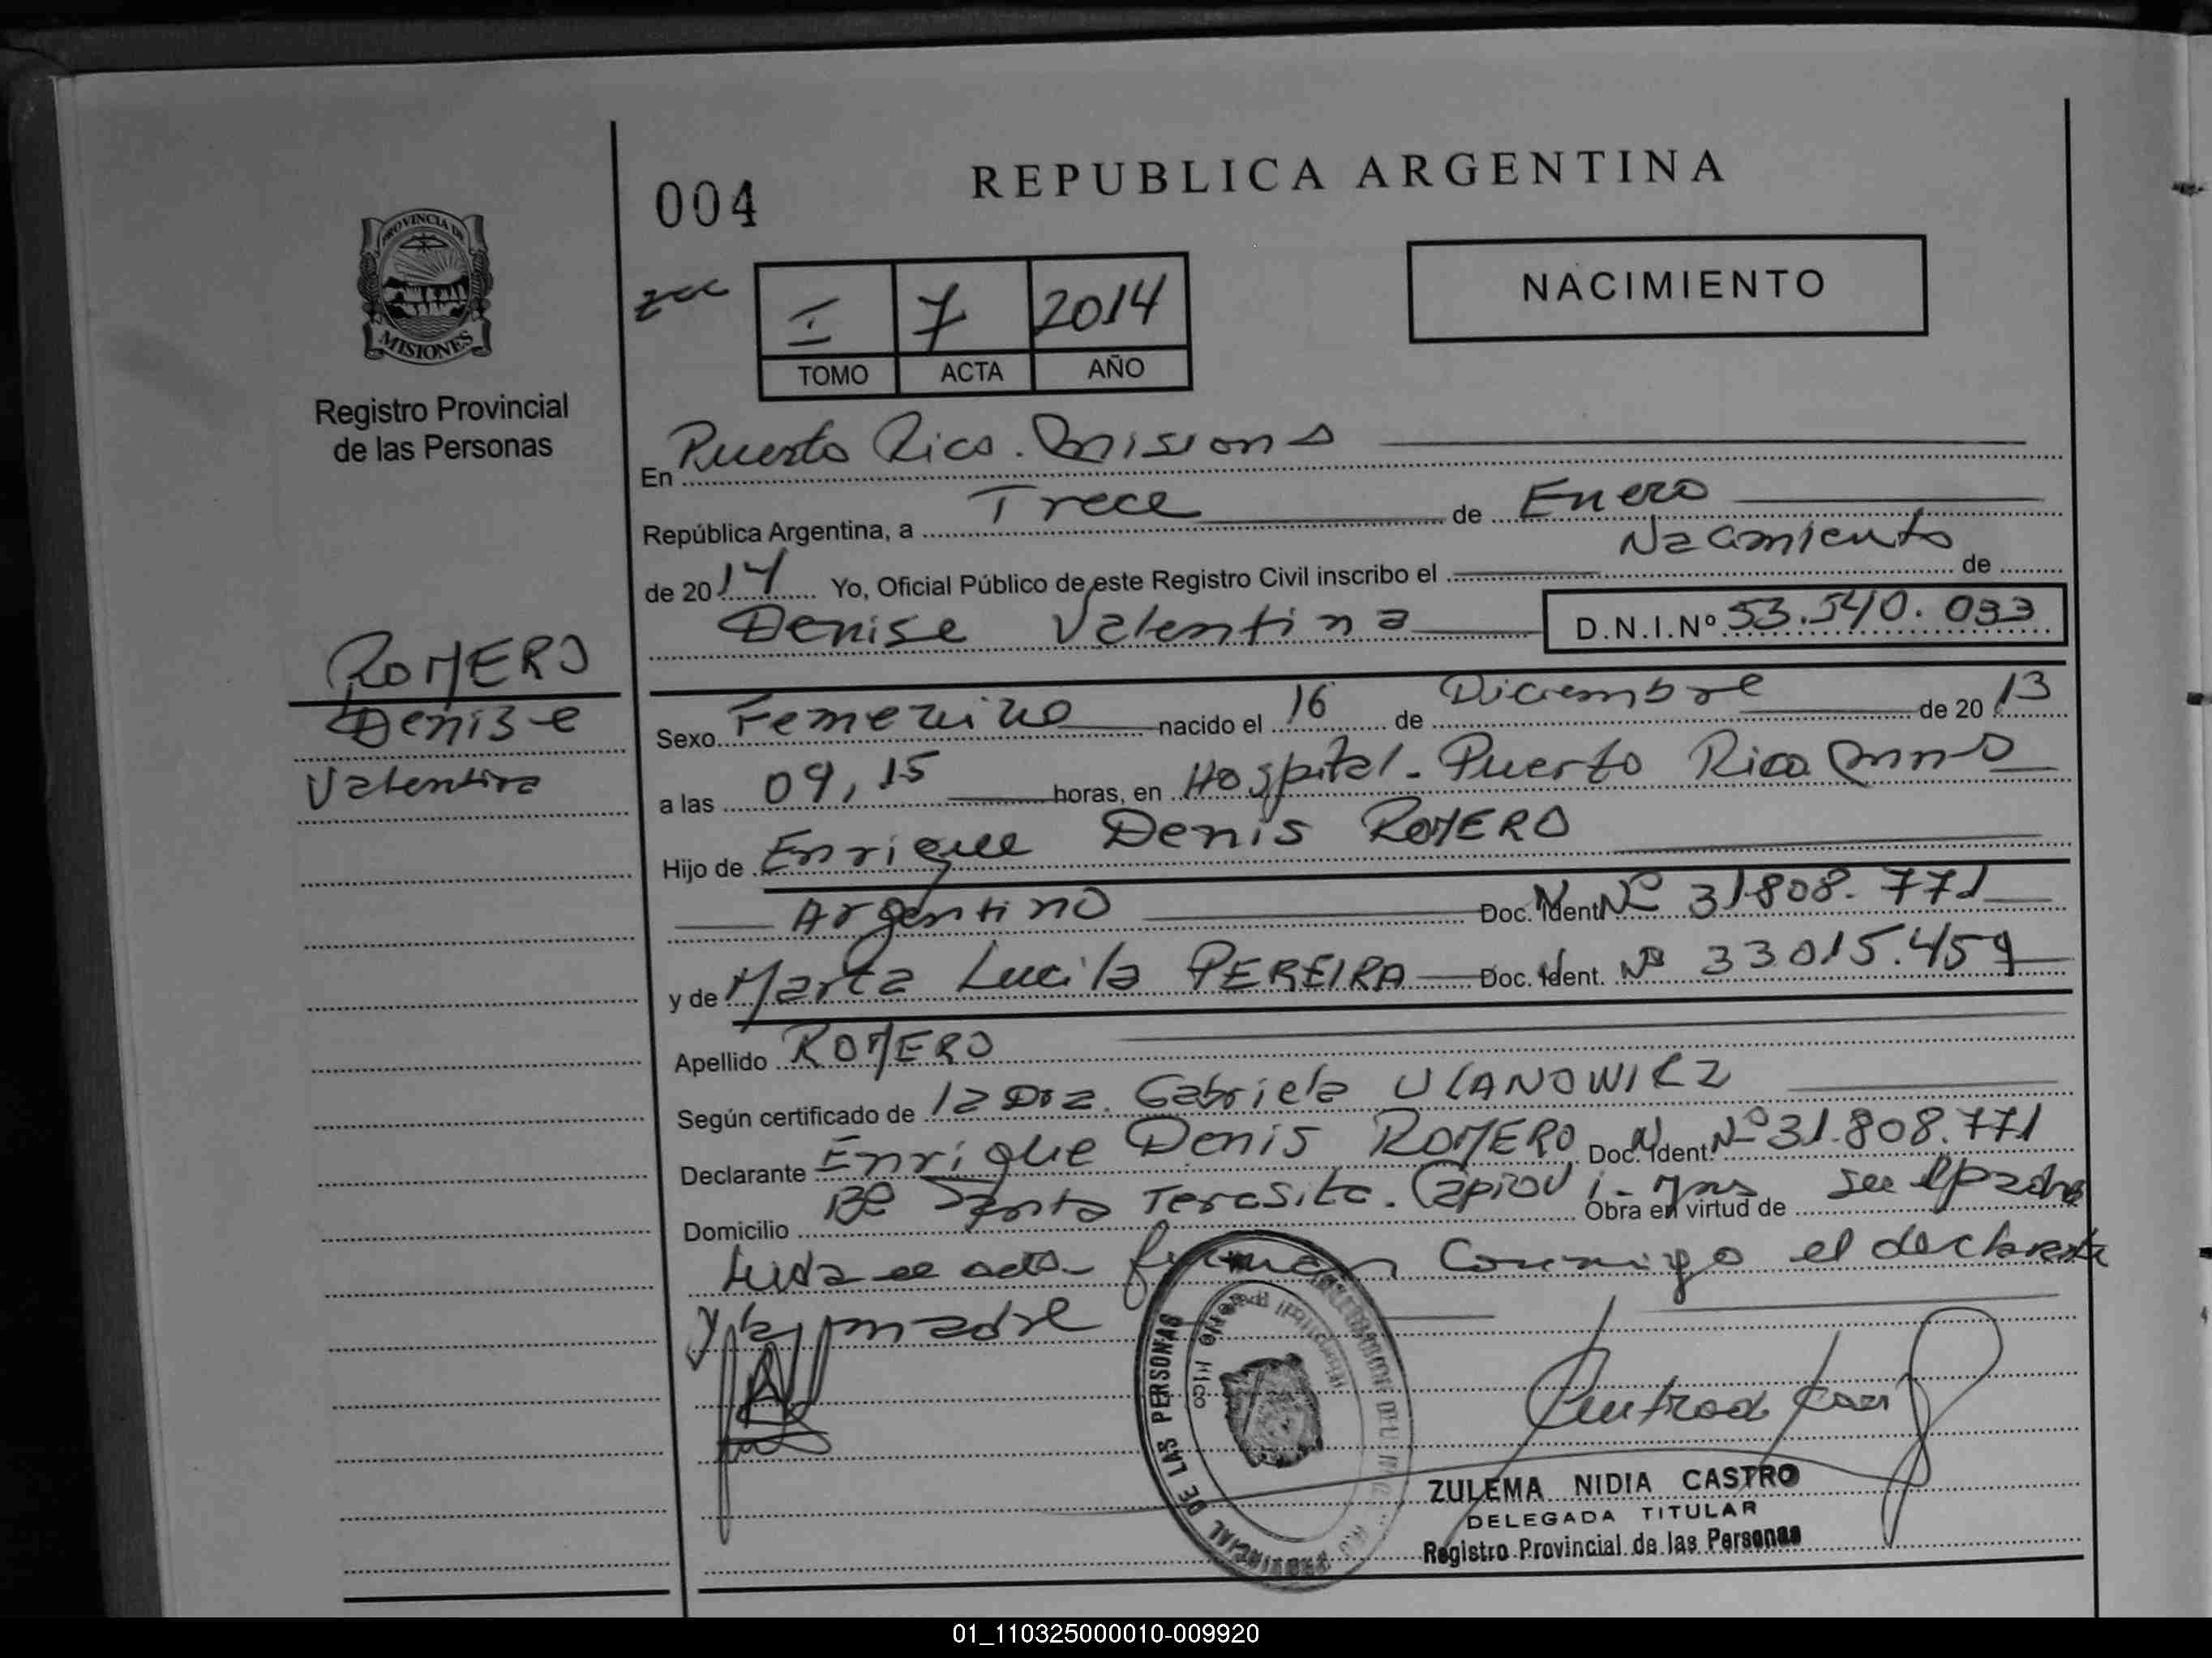 REPUBLICA ARGENTINA
004
PROVINCIA DE
MISIONES
Registro Provincial
de las Personas
I 7 2014
TOMO ACTA AÑO
NACIMIENTO
En Puerto Rico. Misiones
República Argentina, a Trece de Enero
de 2014 Yo, Oficial Público de este Registro Civil inscribo el Nacimiento de
Denise Valentina D.N.I.Nº 53.540.033
ROMERO
Denise
Valentina
Sexo Femenino nacido el 16 de Diciembre de 2013
a las 09,15 horas, en Hospital. Puerto Rico Mnes
Hijo de Enrique Denis ROMERO
Argentino Doc. Ident Nº 31808.771
y de Marta Lucila PEREIRA Doc. Ident. Nº 33015.459
Apellido ROMERO
Según certificado de la Dra. Gabriela ULANOWICZ
Declarante Enrique Denis ROMERO Doc. Ident. Nº 31.808.771
Domicilio Bº Santa Teresita. Capiovi - Mns Obra en virtud de su
el acta firman Conmigo el declarante
y la madre
DE LAS PERSONAS
ZULEMA NIDIA CASTRO
DELEGADA TITULAR
Registro Provincial de las Personas
01_110325000010-009920